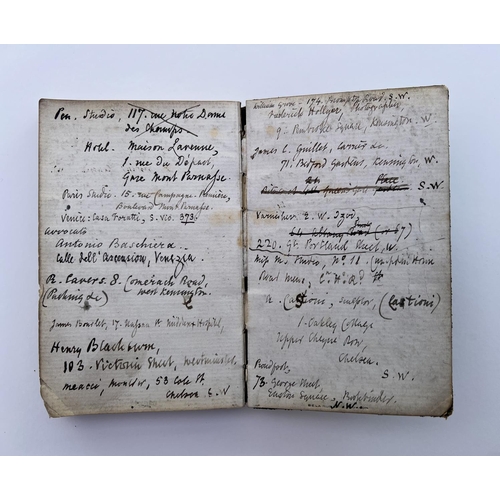 Pen. Studio, 117. rue Notre Dame
des Champs
Hotel. Maison Lavenue,
1. rue du Départ,
Gare Mont Parnasse.
Paris Studio. 15. rue Campagne Première,
Boulevard Mont Parnasse.
Venice. Casa S. Vio. 373.
avvocato
Antonio Baschiera.
Calle dell'Ascension, Venezia.
R. Cavers. 8. Comeragh Road,
(Packing &c) West Kensington.
James Bourlet, 17. Nassau St Middlesex Hospital,
Henry Blackburn,
103. Victoria Street, Westminster.
Menacci, Moulder, 53 Cale St
Chelsea S.W
William Grove. 174. Brompton Road. S.W.
Frederick Hollyer, Photographer,
9. Pembroke Square, Kensington. W
James C. Guillet, Carver &c
71. Bedford Gardens, Kensington W.
Place
S.W
Varnisher. E. W.
64
220. Gt. Portland Street, W
Studio, No. 11.
R. sculptor, (Castioni)
1. Oakley Cottage
Upper Cheyne Row,
Chelsea.
S.W.
73. George Street
Euston Square, Bookbinder.
N.W.